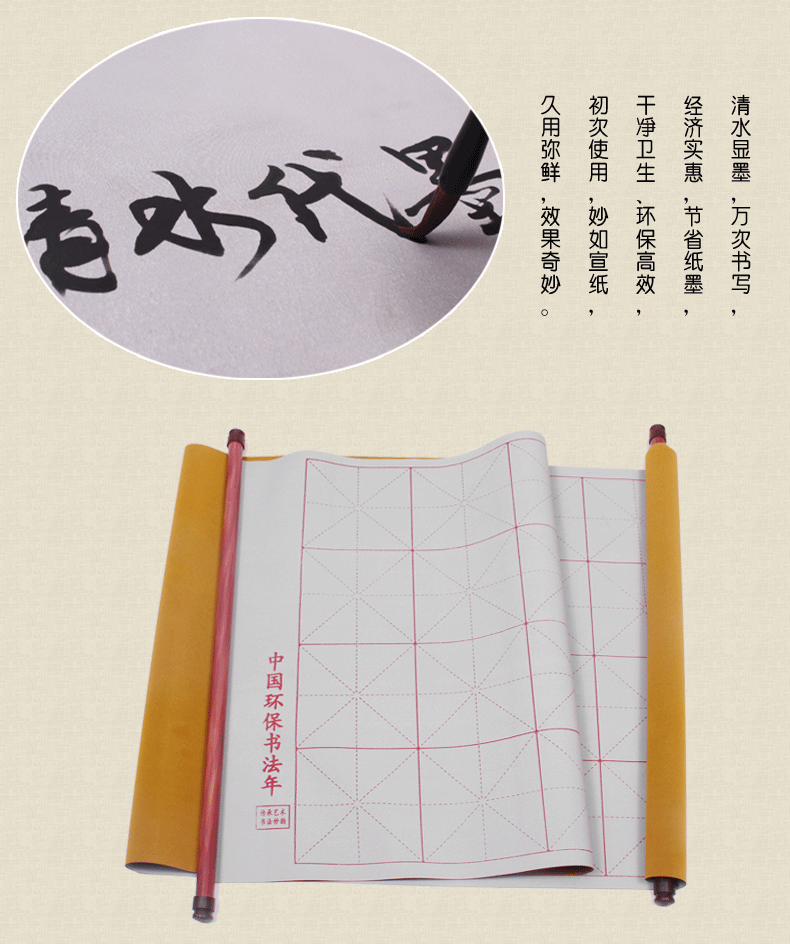 清水代墨
清水显墨,万次书写,
经济实惠,节省纸墨,
干净卫生、环保高效,
初次使用,妙如宣纸,
久用弥鲜,效果奇妙。
中国环保书法年
传承艺术
书法妙韵